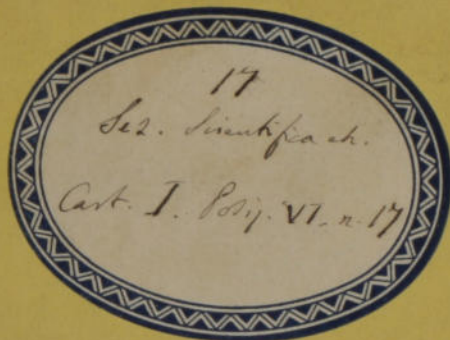 17
Sez. Scientifica ch.
Cart. I. Posiz. VI. n. 17